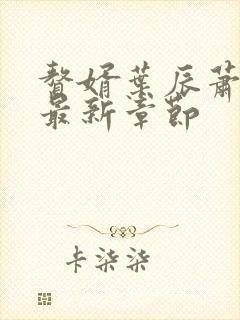 赘婿叶辰萧
最新章节
卡柒柒